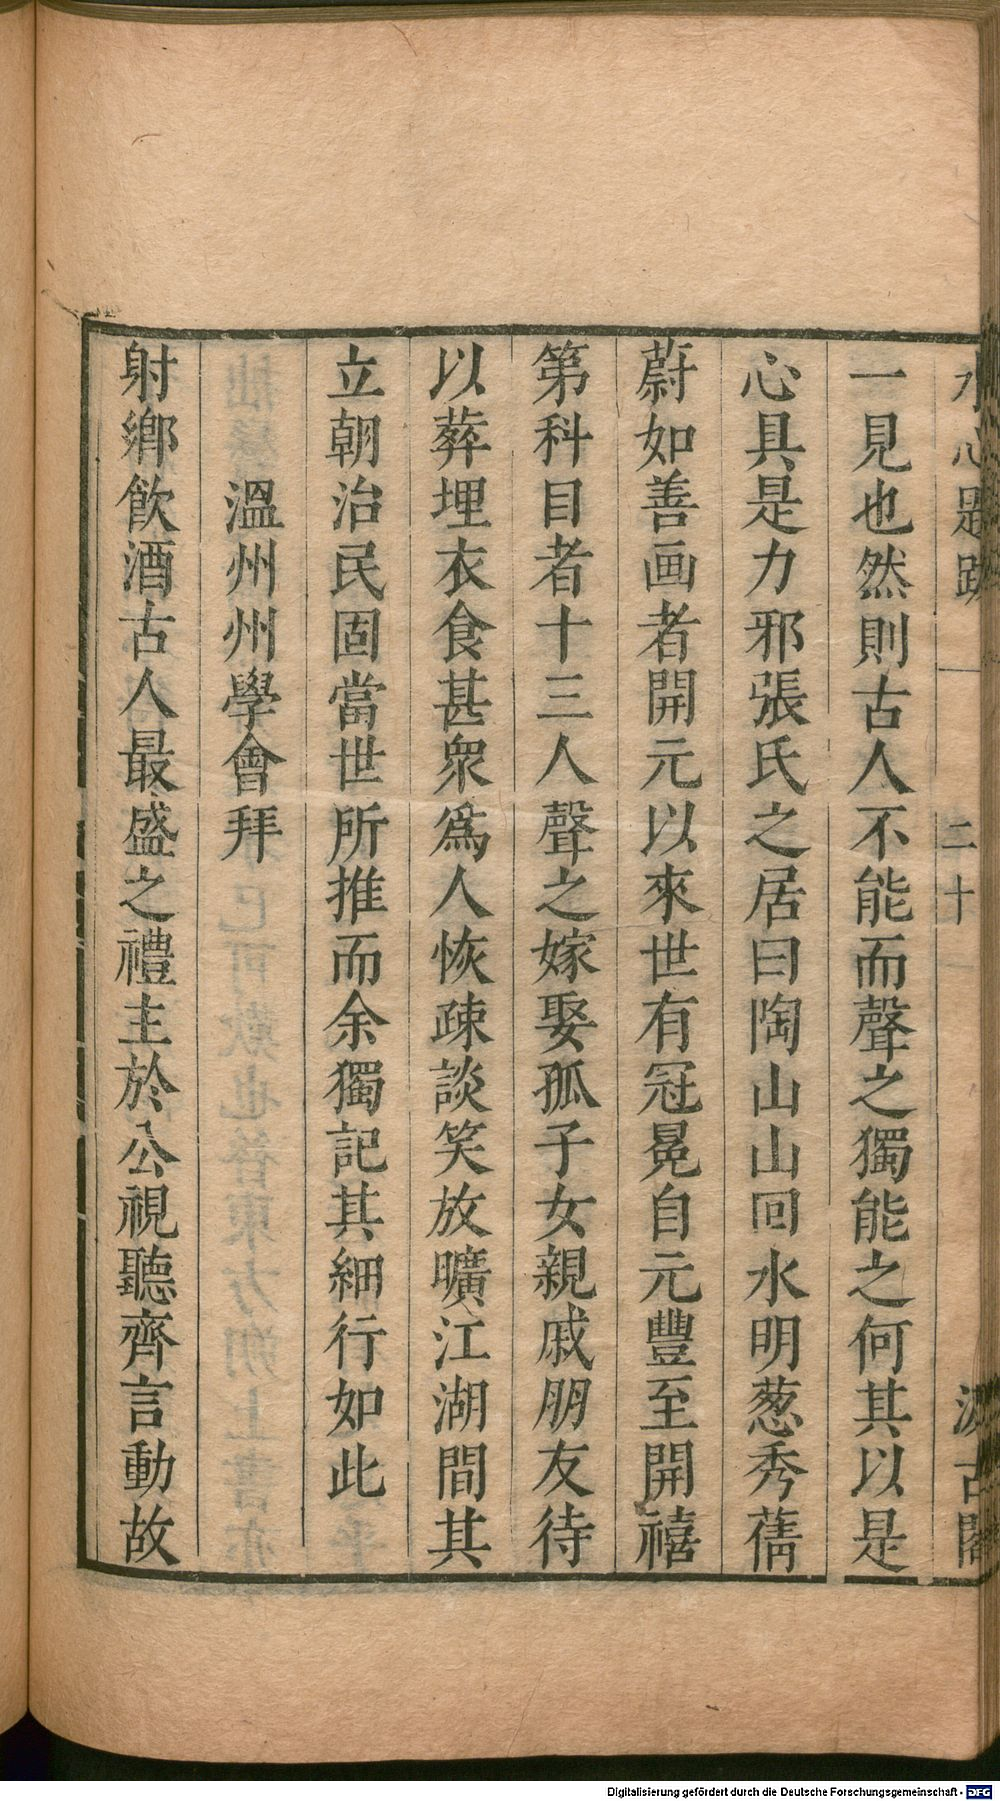 水心題跋 一 二十 汲古閣
一見也然則古人不能而聲之獨能之何其以是
心具是力邪張氏之居曰陶山山回水明葱秀蒨
蔚如善画者開元以來世有冠冕自元豐至開禧
第科目者十三人聲之嫁娶孤子女親戚朋友待
以葬埋衣食甚衆爲人恢疎談笑放曠江湖間其
立朝治民固當世所推而余獨記其細行如此
溫州州學會拜
射鄉飲酒古人最盛之禮主於公視聽齊言動故
Digitalisierung gefördert durch die Deutsche Forschungsgemeinschaft - DFG